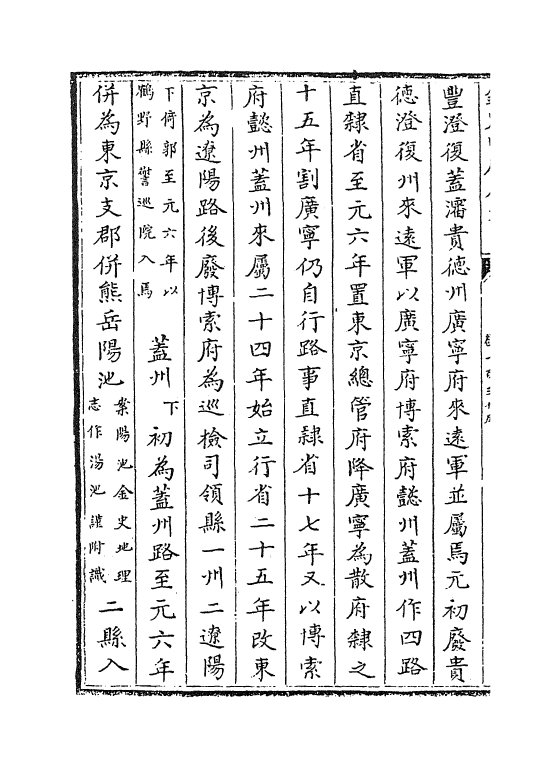 豐澄復蓋瀋貴德州廣寧府來遠軍並屬焉元初廢貴
德澄復州來遠軍以廣寧府博索府懿州蓋州作四路
直隸省至元六年置東京總管府降廣寧為散府隸之
十五年割廣寧仍自行路事直隸省十七年又以博索
府懿州蓋州來屬二十四年始立行省二十五年改東
京為遼陽路後廢博索府為巡檢司領縣一州二遼陽
下倚郭至元六年以
鶴野縣警巡院入焉
蓋州
下
初為蓋州路至元六年
併為東京支郡併熊岳陽池
案陽池金史地理
志作湯池謹附識
二縣入